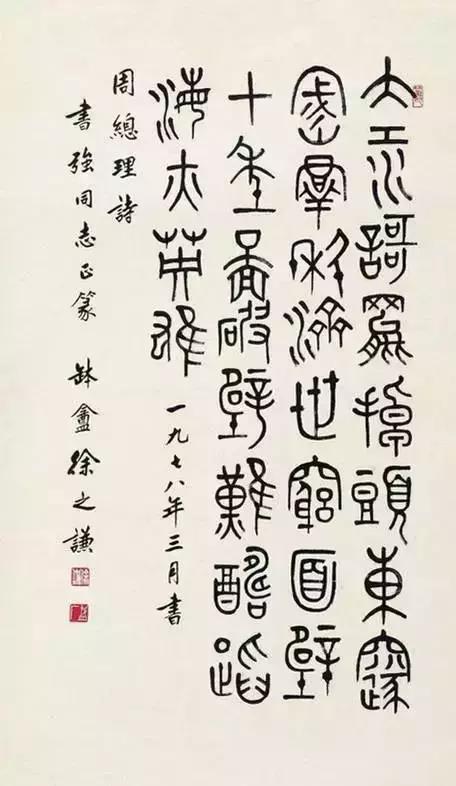 大江歌罷掉頭東邃
密羣科濟世窮面壁
十年圖破壁難酬蹈
海亦英雄
一九七八年三月書
周總理詩
書強同志正篆 缽盦徐之謙